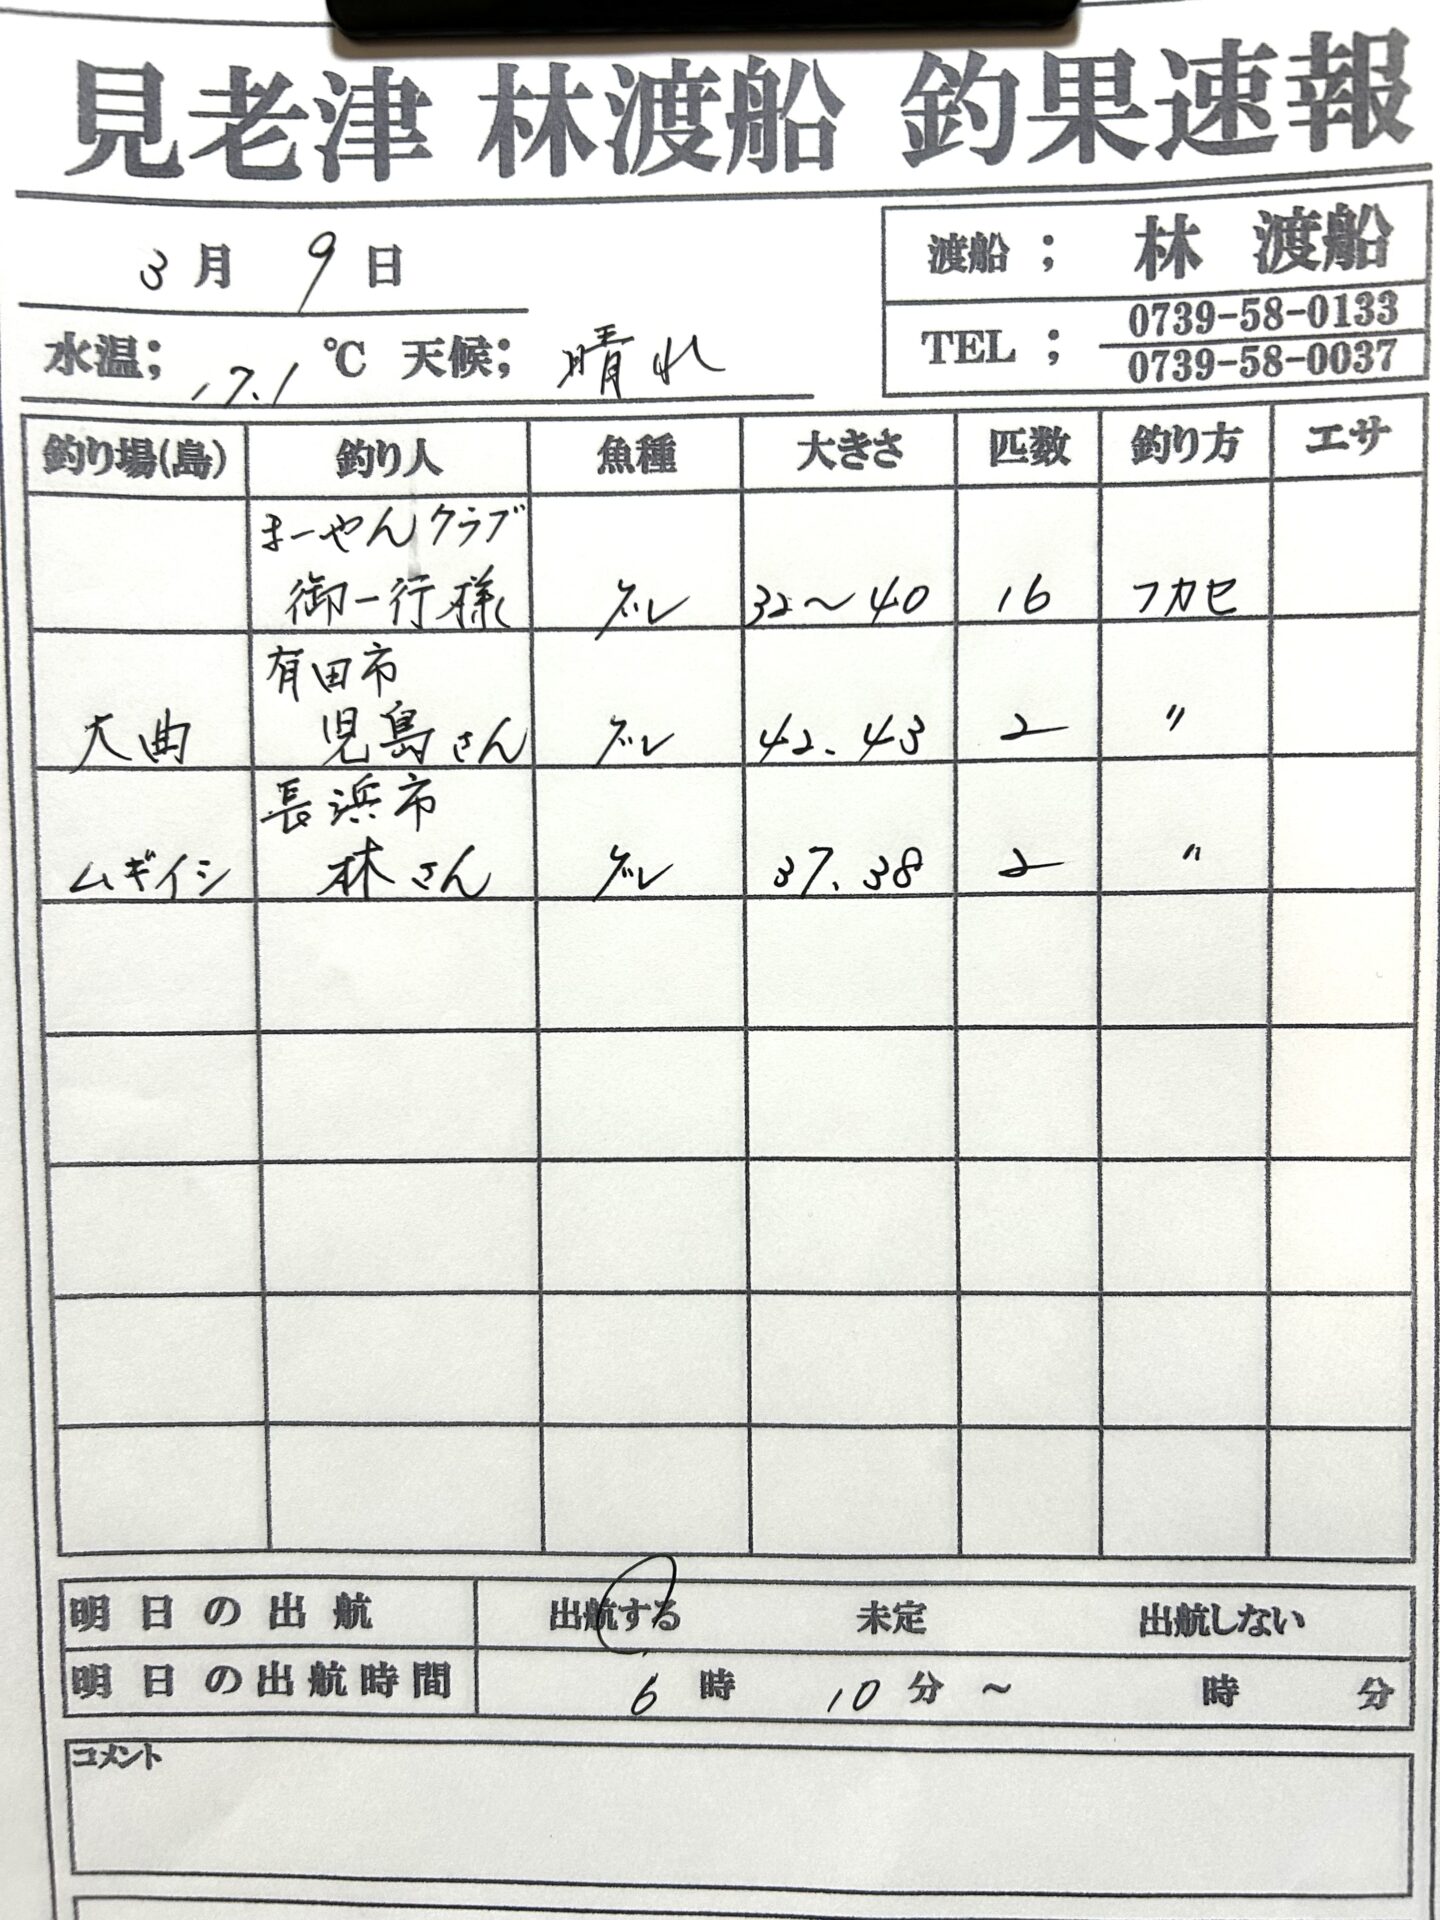 見老津 林渡船 釣果速報
3月 9日
渡船 ; 林 渡船
TEL ; 0739-58-0133
0739-58-0037
水温; 17.1 ℃ 天候; 晴れ
釣り場(島) 釣り人 魚種 大きさ 匹数 釣り方 エサ
まーやんクラブ
御一行様 グレ 32〜40 16 フカセ
有田市
大曲 児島さん グレ 42.43 2 〃
長浜市
ムギイシ 林さん グレ 37.38 2 〃
明日の出航 出航する 未定 出航しない
明日の出航時間 6時 10分 ~ 時 分
コメント